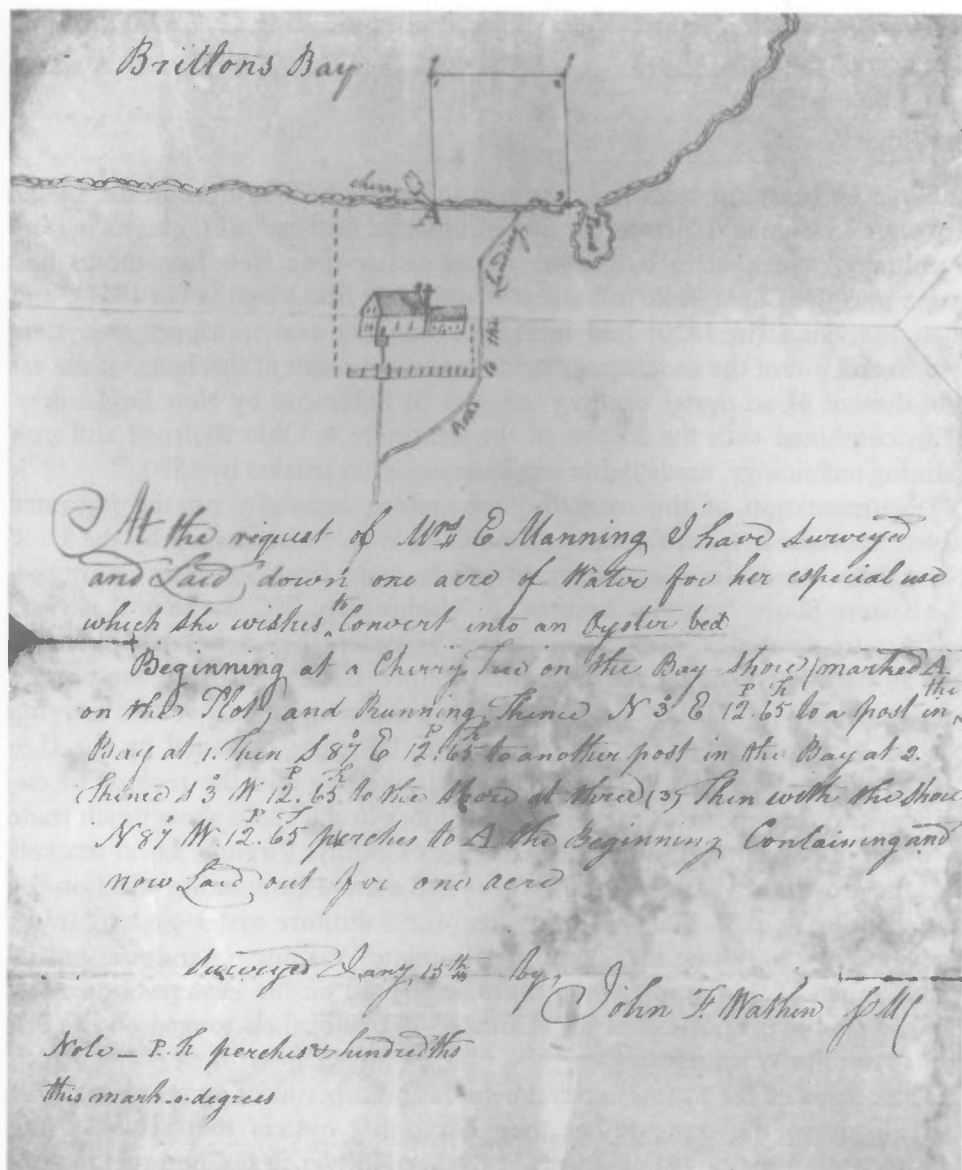 Brittons Bay
cherry
A
1
2
3
Landing
to the
And
At the request of Mrs E Manning I have surveyed
and Laid down one acre of Water for her especial use
which she wishes to Convert into an Oyster bed
Beginning at a Cherry Tree on the Bay Shore (marked A
on the Plot) and Running Thence N 3° E 12.65 P h to a post in the
Bay at 1. Then S 87° E 12.65 P h to another post in the Bay at 2.
Thence S 3° W 12.65 P h to the Shore at three (3) Then with the Shore
N 87° W. 12.65 P h perches to A the Beginning Containing and
now Laid out for one acre
Surveyed Jany, 15th by,
John F. Wathen
Note — P. h perches & hundredths
this mark ° degrees